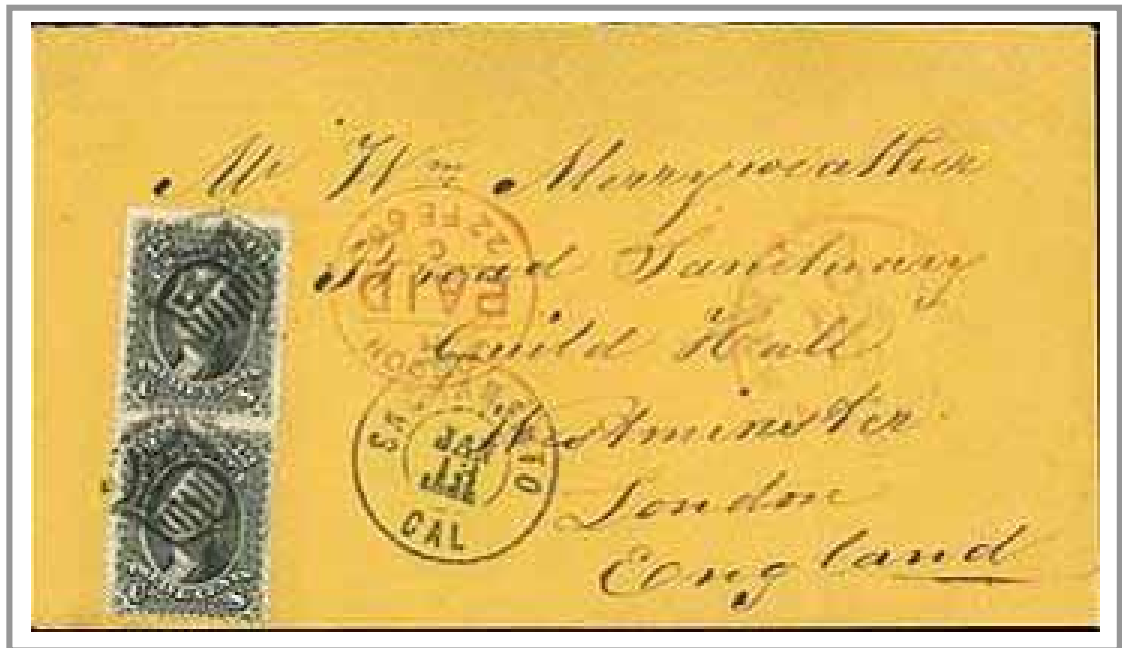 Mr Wm Merryweather
Broad Sanctuary
Guild Hall
Westminster
London
England
PAID
22 FE
CAL